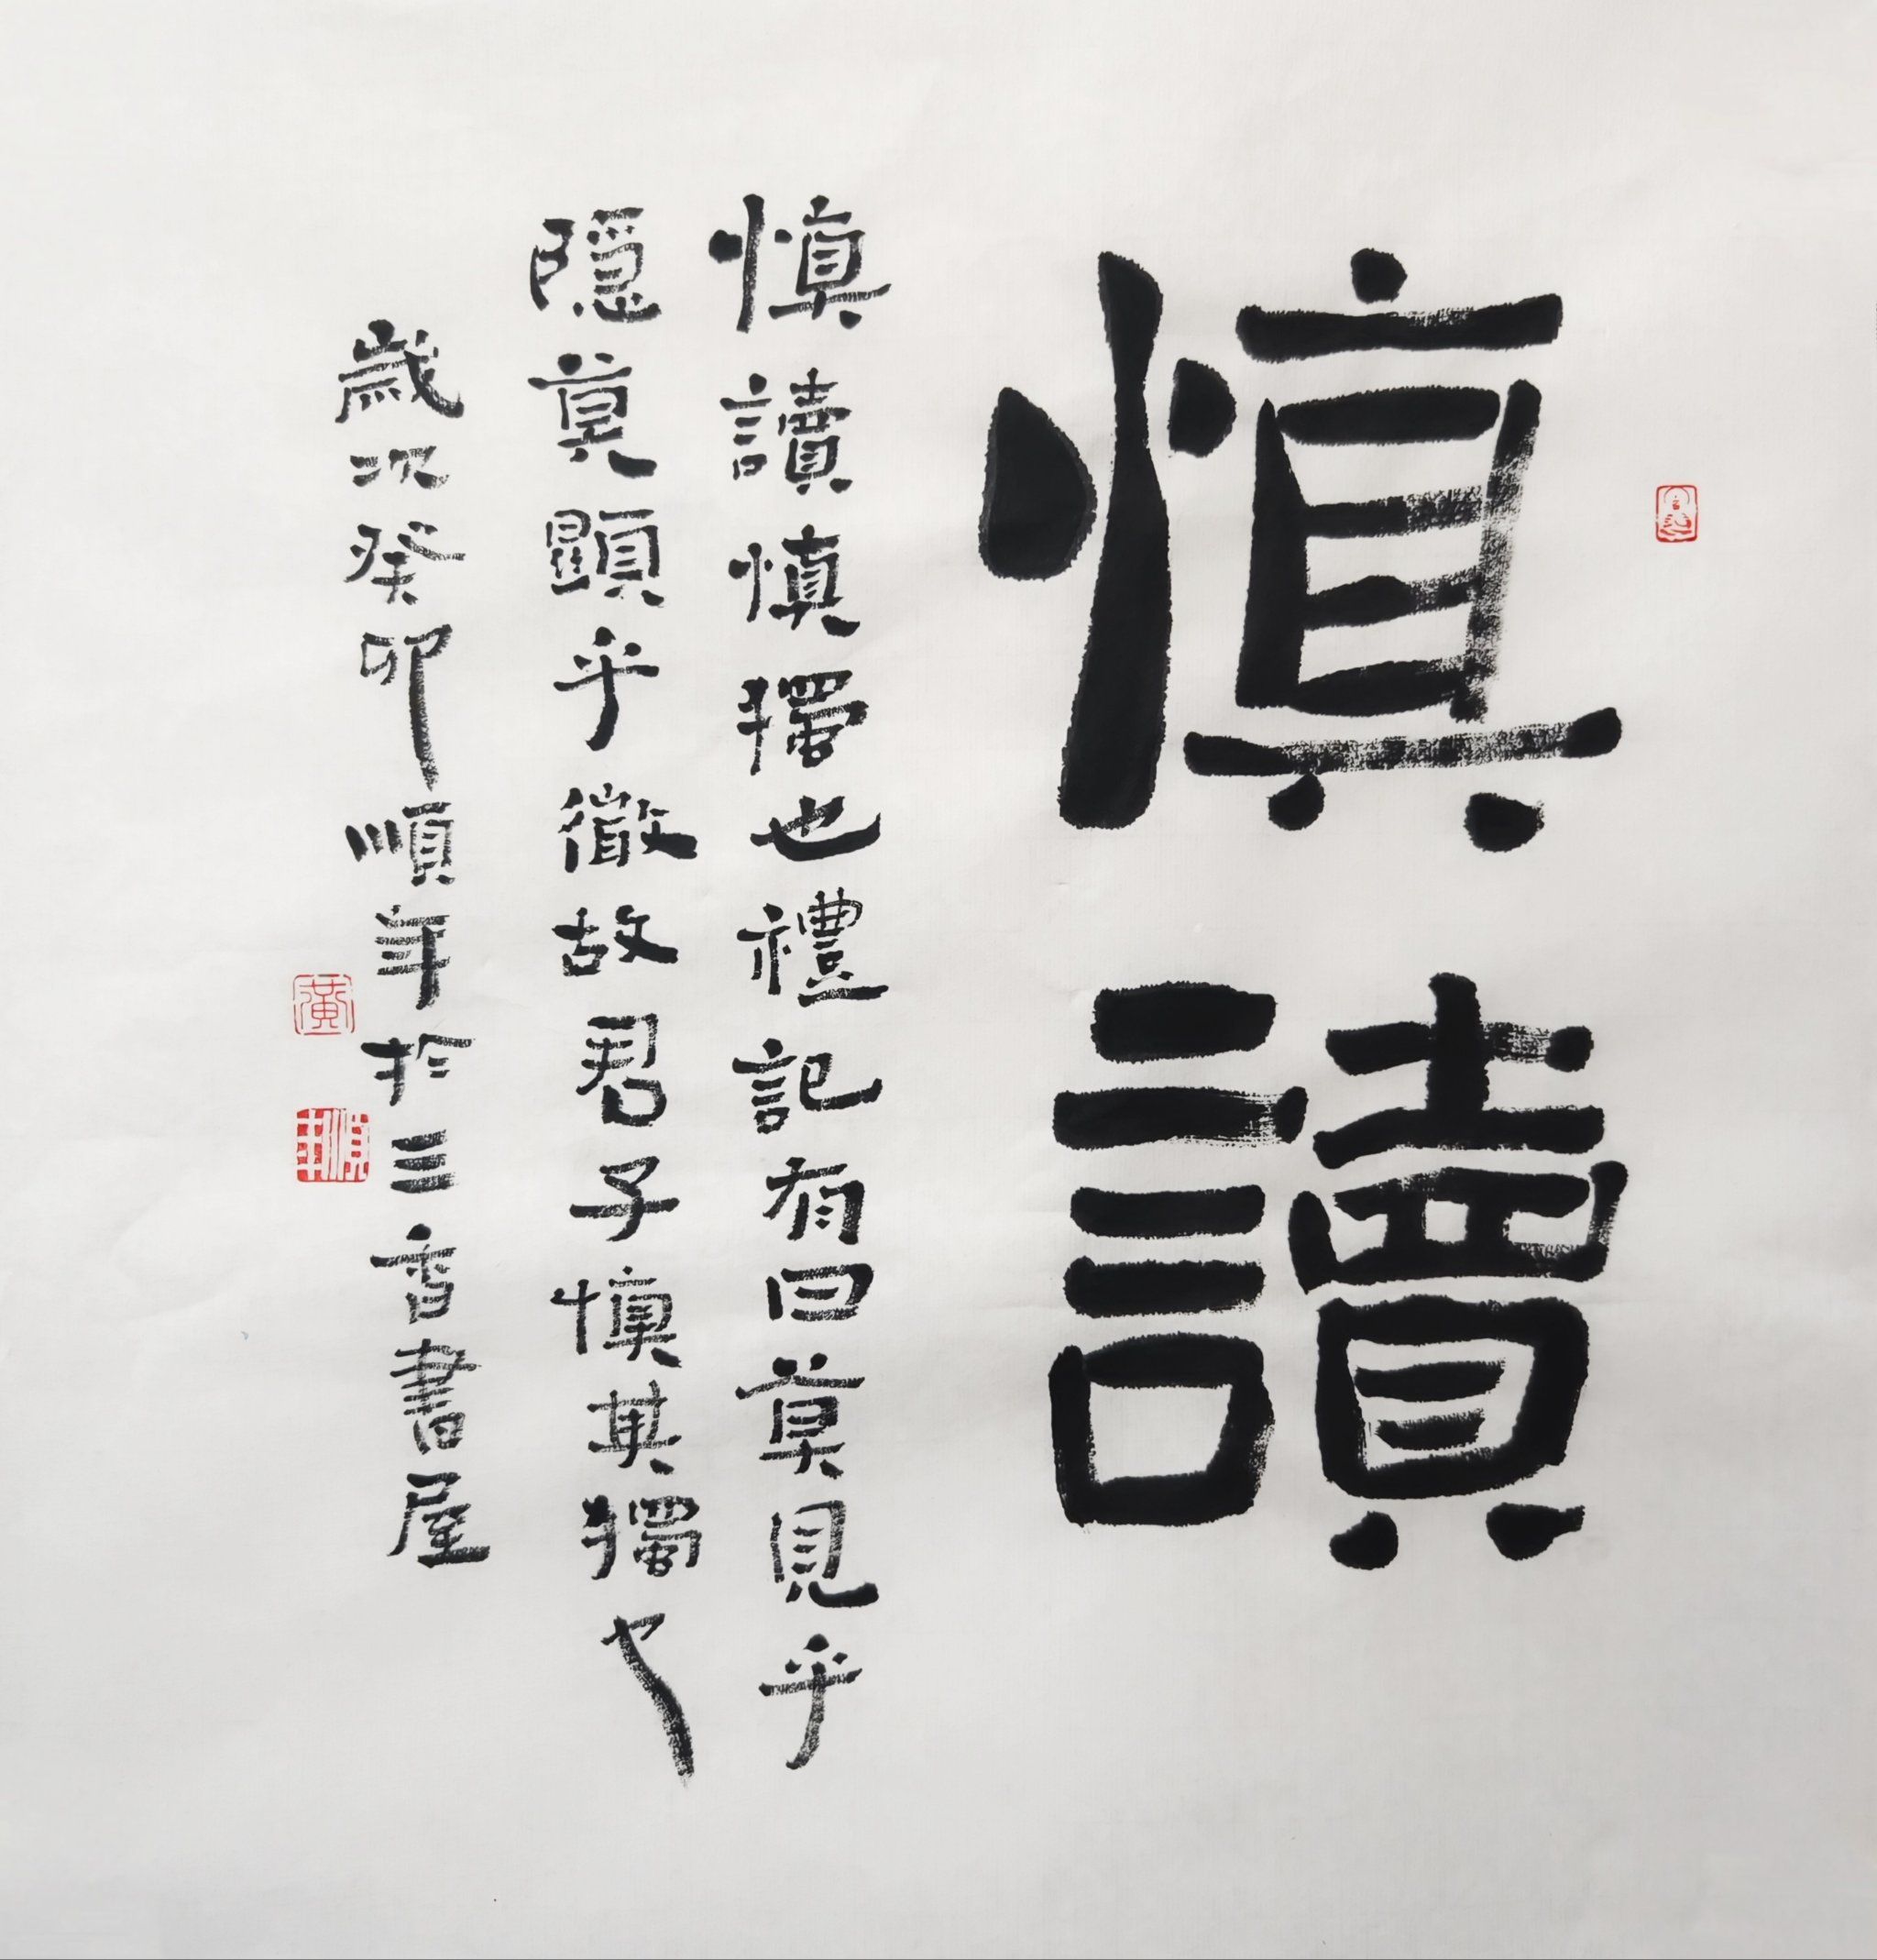 慎讀
慎讀慎獨也禮記有曰莫見乎
隱莫顯乎微故君子慎其獨也
歲次癸卯順年於三香書屋
黃
順年